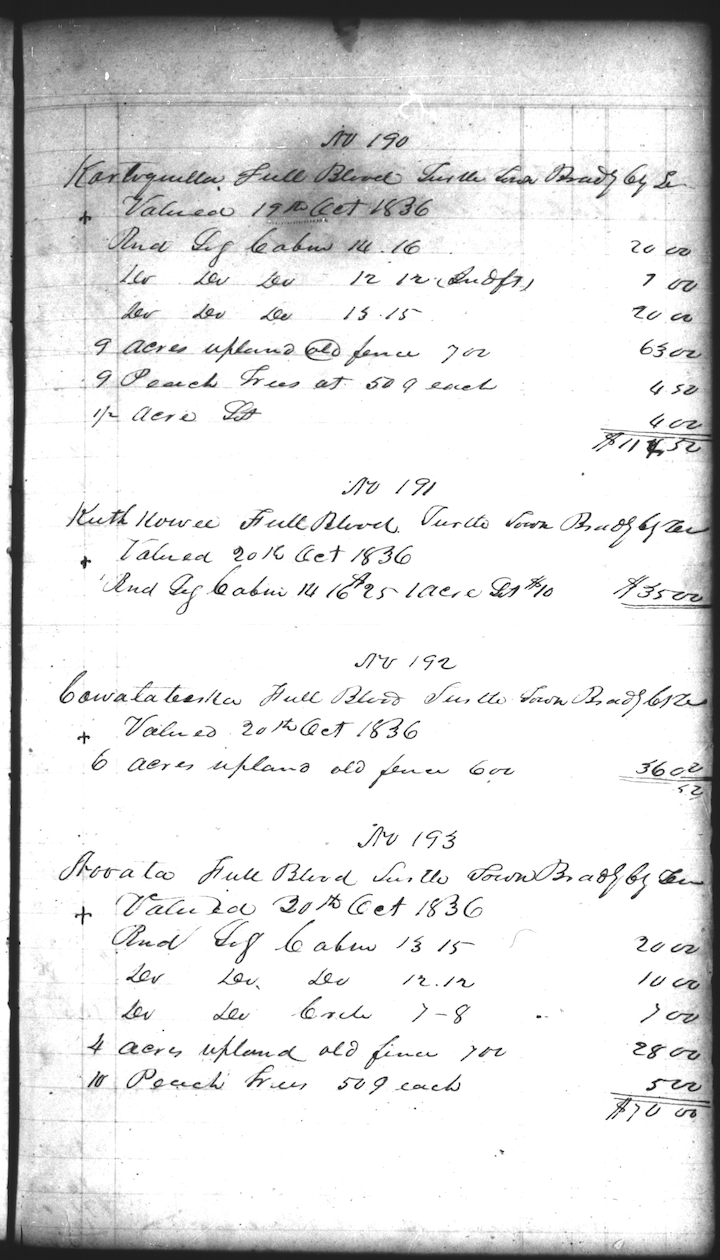 No 190
Kartoquilla Full Blood Turtle Town Bradly Cy Te
+ Valued 19th Oct 1836
Rnd Log Cabin 14.16 20 00
Do Do Do 12 12 7 00
Do Do Do 13.15 20 00
9 acres upland old fence 700 63 00
9 Peach Trees at 50 ₵ each 4 50
1/2 acre Lot 4 00
$11 50
No 191
Kuthkowee Full Blood Turtle Town Bradly Cy Ten
+ Valued 20th Oct 1836
Rnd Log Cabin 14 16 $25 1 acre Lot $10 $35 00
No 192
Cowalateeska Full Blood Turtle Town Bradly Cy Te
+ Valued 20th Oct 1836
6 acres upland old fence 600 36 00
No 193
Novata Full Blood Turtle Town Bradly Cy Ten
+ Valued 20th Oct 1836
Rnd Log Cabin 13 15 20 00
Do Do. Do 12.12 10 00
Do Do Crib 7-8 7 00
4 acres upland old fence 700 28 00
10 Peach Trees 50 ₵ each 5 00
$70 00